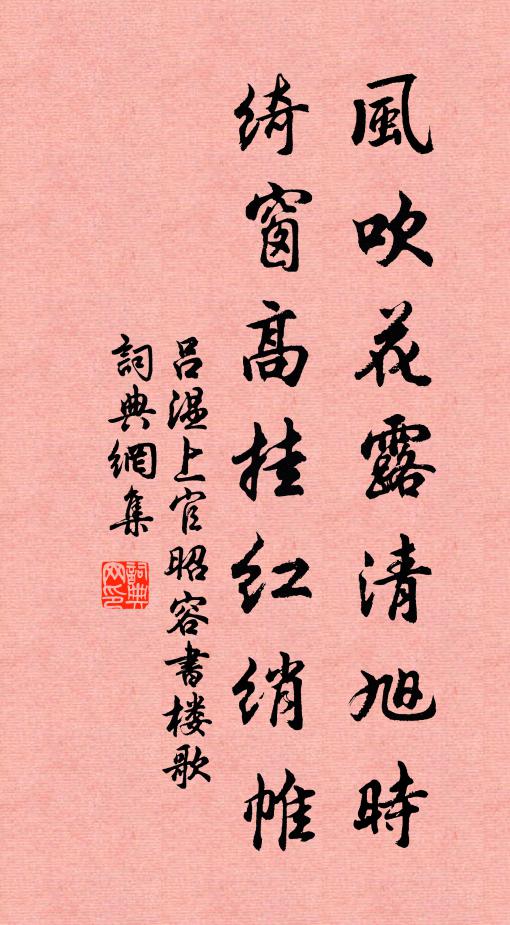 風吹花露清旭時
綺窗高挂紅綃帷
呂溫上官昭容書楼歌
詞典網集
詞典網印